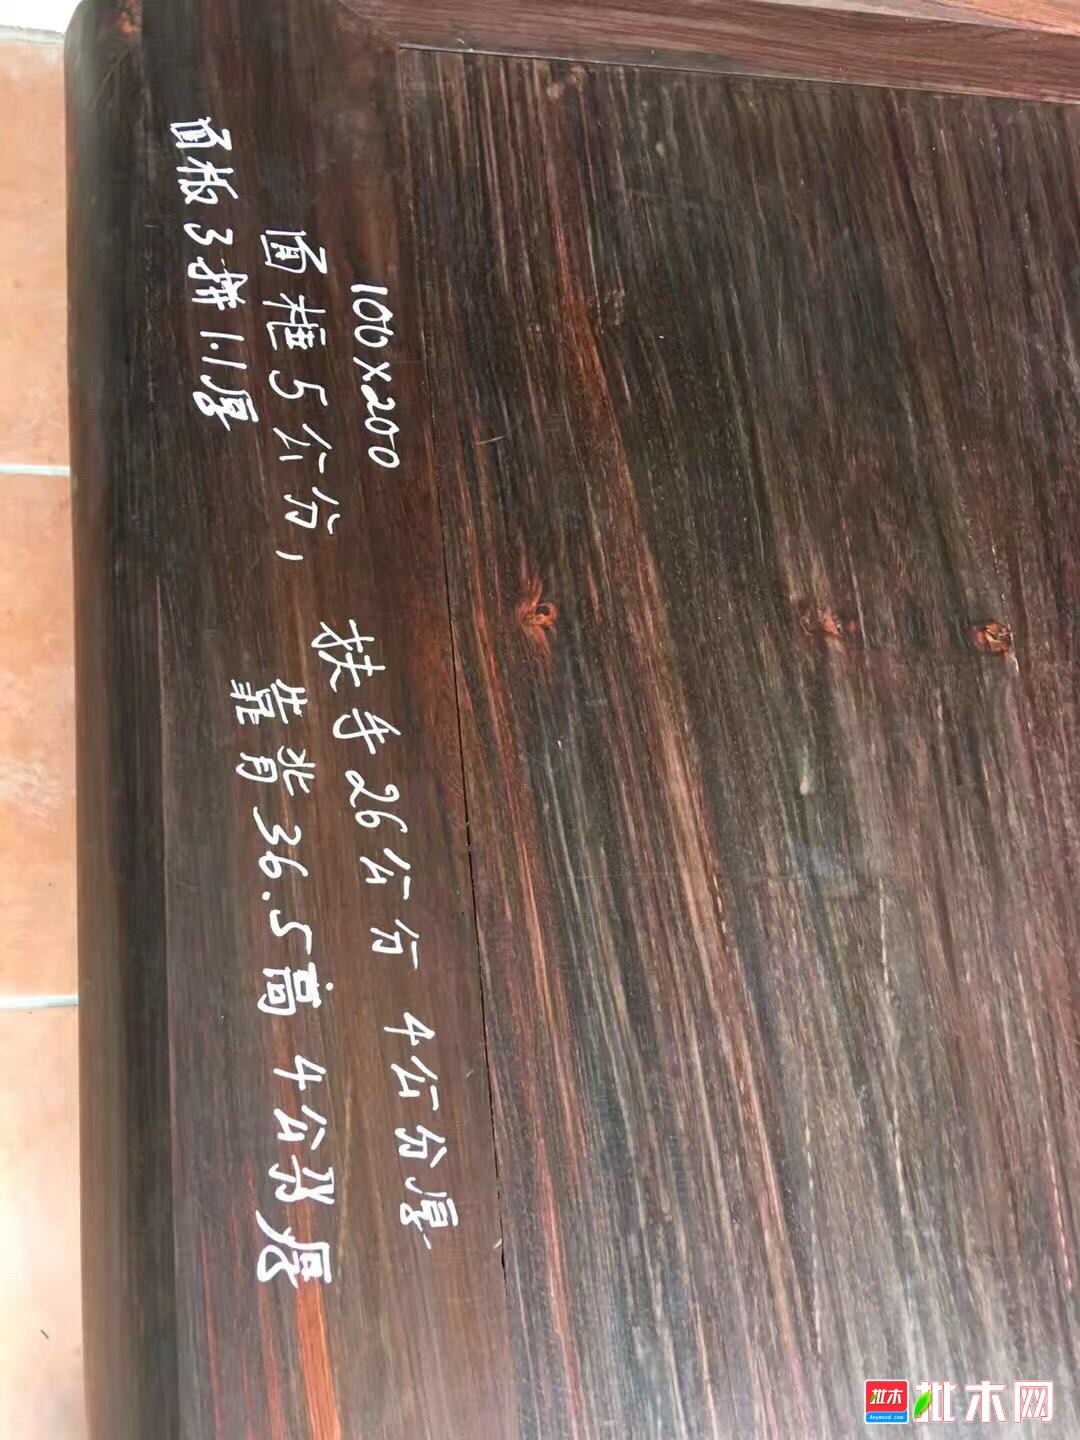 100×200
面框5公分,
面板3拼1.1厚
扶手26公分 4公分厚
靠背36.5高 4公分厚
批木
Anywood.com
批木网